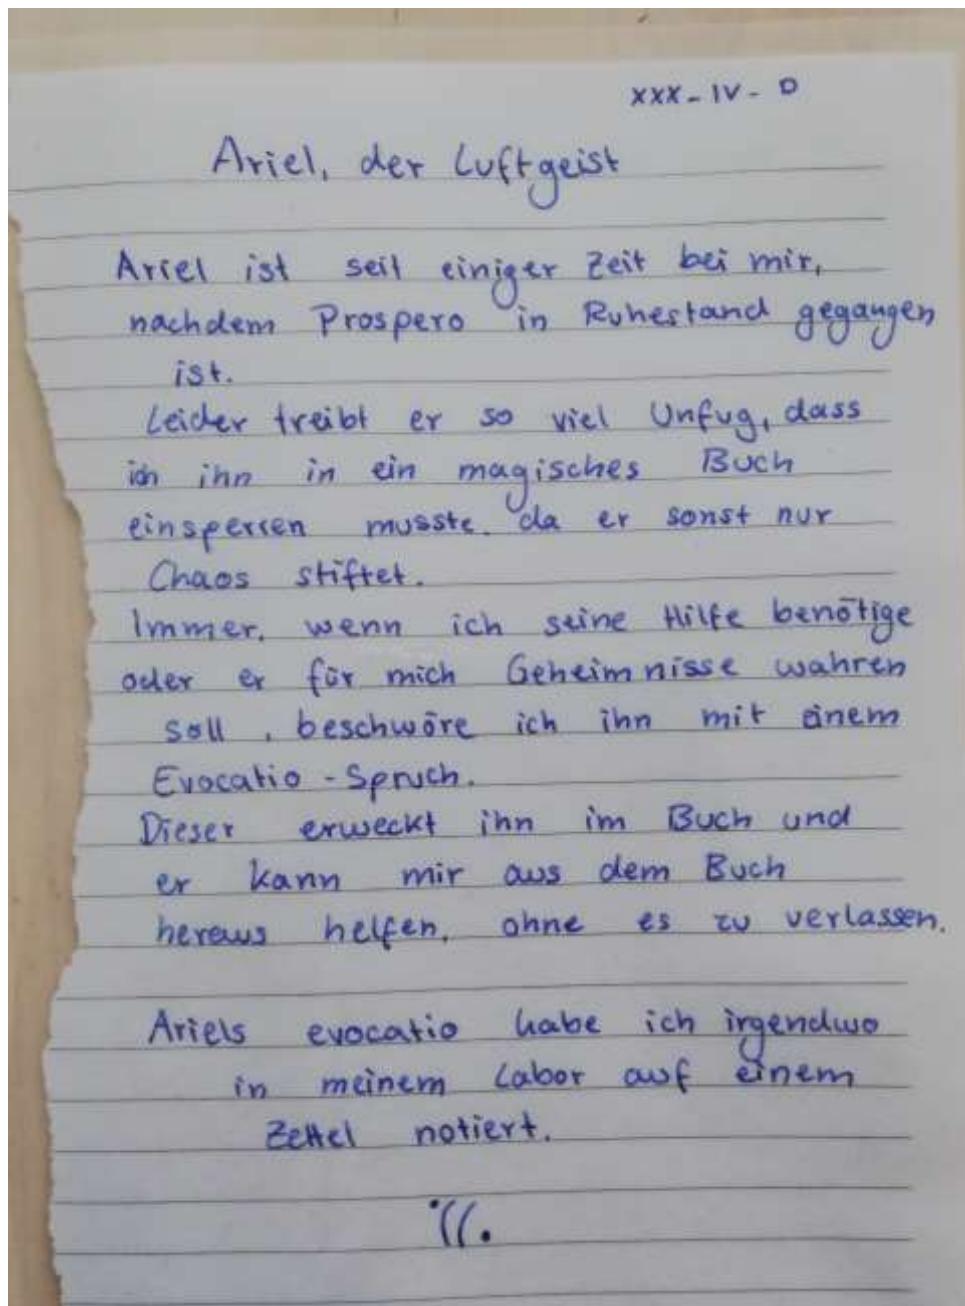 XXX - IV - D
Ariel, der Luftgeist
Ariel ist seit einiger Zeit bei mir,
nachdem Prospero in Ruhestand gegangen
ist.
Leider treibt er so viel Unfug, dass
ich ihn in ein magisches Buch
einsperren musste. da er sonst nur
Chaos stiftet.
Immer, wenn ich seine Hilfe benötige
oder er für mich Geheimnisse wahren
soll, beschwöre ich ihn mit einem
Evocatio - Spruch.
Dieser erweckt ihn im Buch und
er kann mir aus dem Buch
heraus helfen, ohne es zu verlassen.
Ariels evocatio habe ich irgendwo
in meinem Labor auf einem
Zettel notiert.